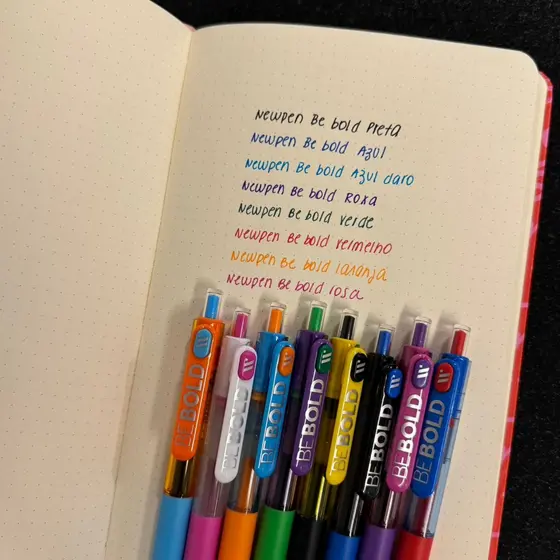 Newpen Be bold Preta
Newpen Be bold Azul
Newpen Be bold Azul claro
Newpen Be bold Roxa
Newpen Be bold verde
Newpen Be bold vermelho
Newpen Be bold laranja
Newpen Be bold rosa
BE BOLD
BE BOLD
BE BOLD
BE BOLD
BE BOLD
BE BOLD
BE BOLD
BE BOLD